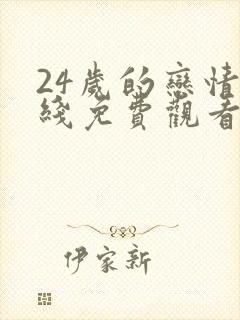 24歲的戀情
綫免費觀看
伊家新